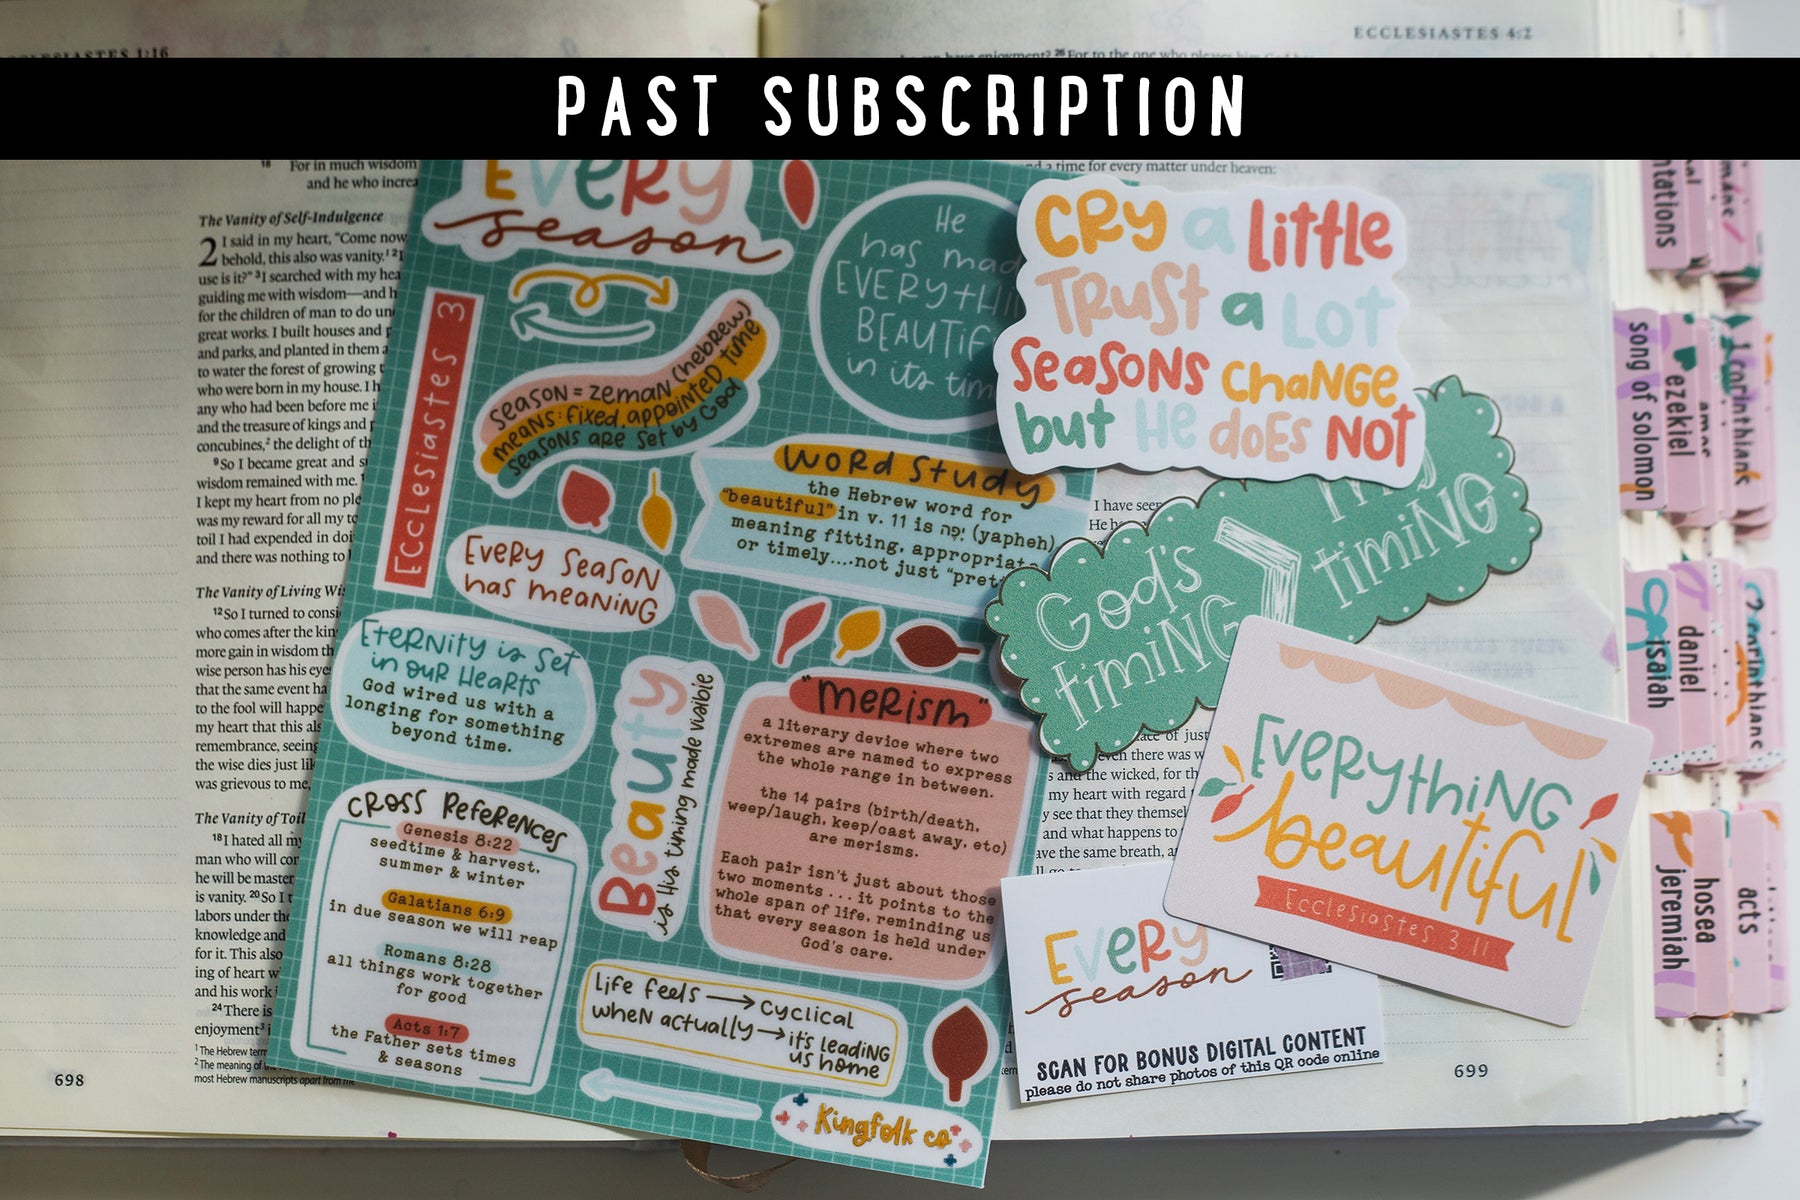 ECCLESIASTES 1:16
ECCLESIASTES 4:2
PAST SUBSCRIPTION
18 For in much wisdom
and he who increa
The Vanity of Self-Indulgence
2 I said in my heart, "Come now
behold, this also was vanity.
use is it?" 3 I searched with my hea
guiding me with wisdom—and h
for the children of man to do un
great works. I built houses and p
and parks, and planted in them a
to water the forest of growing t
who were born in my house. I h
any who had been before me i
and the treasure of kings and p
concubines,2 the delight of th
9 So I became great and s
wisdom remained with me.
I kept my heart from no ple
was my reward for all my to
toil I had expended in doi
and there was nothing to
The Vanity of Living Wi
12 So I turned to consi
who comes after the kin
more gain in wisdom th
wise person has his eyes
that the same event ha
to the fool will happe
my heart that this als
remembrance, seeing
the wise dies just lik
was grievous to me,
The Vanity of Toil
18 I hated all my
man who will cor
he will be master
is vanity. 20 So I t
labors under the
knowledge and
for it. This also
ing of heart w
and his work
24 There is
enjoyment3 i
1 The Hebrew term
2 The meaning of
most Hebrew manuscripts apart from me
698
EVERY
season
Ecclesiastes 3
season = zeman (hebrew)
means: fixed, appointed time
seasons are set by God
He
has mad
EVERYTHI
BEAUTIF
in its tim
WORD STUDY
the Hebrew word for
"beautiful" in v. 11 is יָפֶה (yapheh)
meaning fitting, appropriate
or timely....not just "prett
EVERY SEASON
has meaning
Eternity is set
in our hearts
God wired us with a
longing for something
beyond time.
Beauty
is His timing made visible
"merism"
a literary device where two
extremes are named to express
the whole range in between.
the 14 pairs (birth/death,
weep/laugh, keep/cast away, etc)
are merisms.
Each pair isn't just about those
two moments...it points to the
whole span of life, reminding us
that every season is held under
God's care.
CROSS REFERENCES
Genesis 8:22
seedtime & harvest,
summer & winter
Galatians 6:9
in due season we will reap
Romans 8:28
all things work together
for good
Acts 1:7
the Father sets times
& seasons
Life feels → cyclical
when actually → it's leading
us home
Kingfolk co
d a time for every matter under heaven:
CRY a little
TRUST a LOT
SEASONS CHANGE
but HE DOES NOT
God's
timing
my
timing
I have seen
EVERYTHING
beautiful
Ecclesiastes 3 11
even there was w
s and the wicked, for th
my heart with regard
y see that they themsel
and what happens to
ave the same breath, a
EVERY
season
SCAN FOR BONUS DIGITAL CONTENT
please do not share photos of this QR code online
699
song of solomon
ezekiel
amos
1 corinthians
isaiah
daniel
2 corinthians
jeremiah
hosea
acts